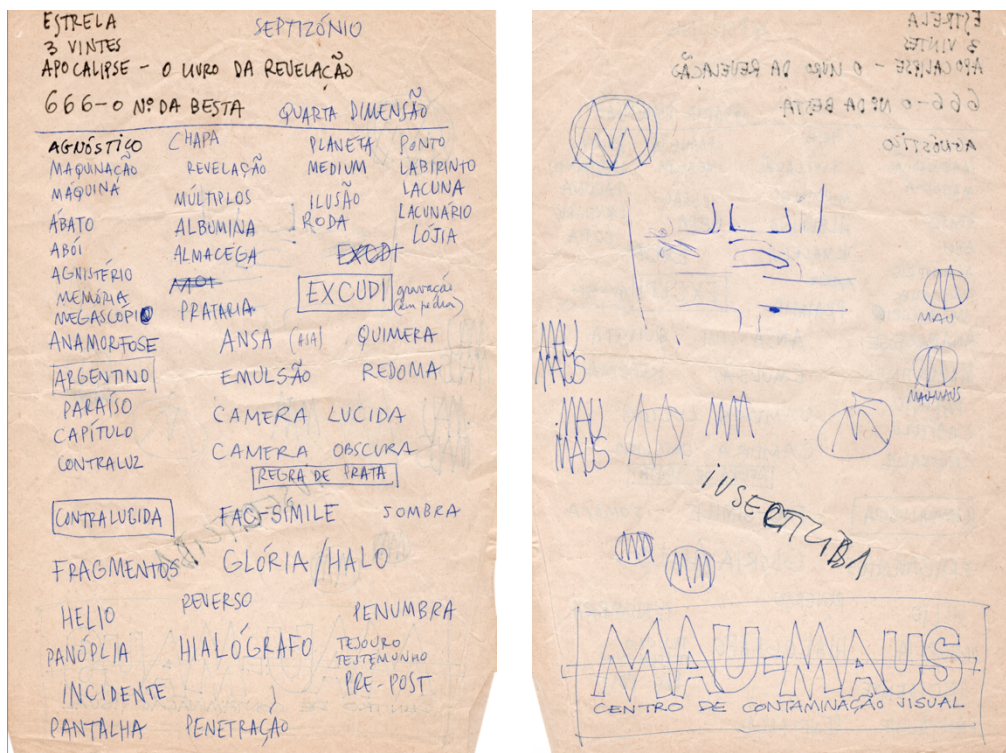 ESTRELA
SEPTIZÓNIO
3 VINTES
APOCALIPSE - O LIVRO DA REVELAÇÃO
666-O Nº DA BESTA
QUARTA DIMENSÃO
AGNÓSTICO
MAQUINAÇÃO
MÁQUINA
ÁBATO
ABÓI
AGNISTÉRIO
MEMÓRIA
MEGASCÓPIO
ANAMORFOSE
ARGENTINO
PARAÍSO
CAPÍTULO
CONTRALUZ
CONTRALUCIDA
FRAGMENTOS
HELIO
PANÓPLIA
INCIDENTE
PANTALHA
CHAPA
REVELAÇÃO
MÚLTIPLOS
ALBUMINA
ALMACEGA
PRATARIA
ANSA (ASA)
EMULSÃO
CAMERA LUCIDA
CAMERA OBSCURA
REGRA DE PRATA
FAC-SÍMILE
GLÓRIA/HALO
REVERSO
HIALÓGRAFO
PENETRAÇÃO
PLANETA
MEDIUM
ILUSÃO
RODA
EXCDI
EXCUDI
gravação
(em pedra)
QUIMERA
REDOMA
SOMBRA
PENUMBRA
TESOURO
TESTEMUNHO
PRE-POST
PONTO
LABIRINTO
LACUNA
LACUNÁRIO
LÓJIA
ESTRELA
3 VINTES
APOCALIPSE - O LIVRO DA REVELAÇÃO
666-O Nº DA BESTA
AGNÓSTICO
M
MAU
MAU-MAUS
MAU
MAUS
MAU
MAUS
MM
INSECTICIDA
MM
MAU-MAUS
CENTRO DE CONTAMINAÇÃO VISUAL